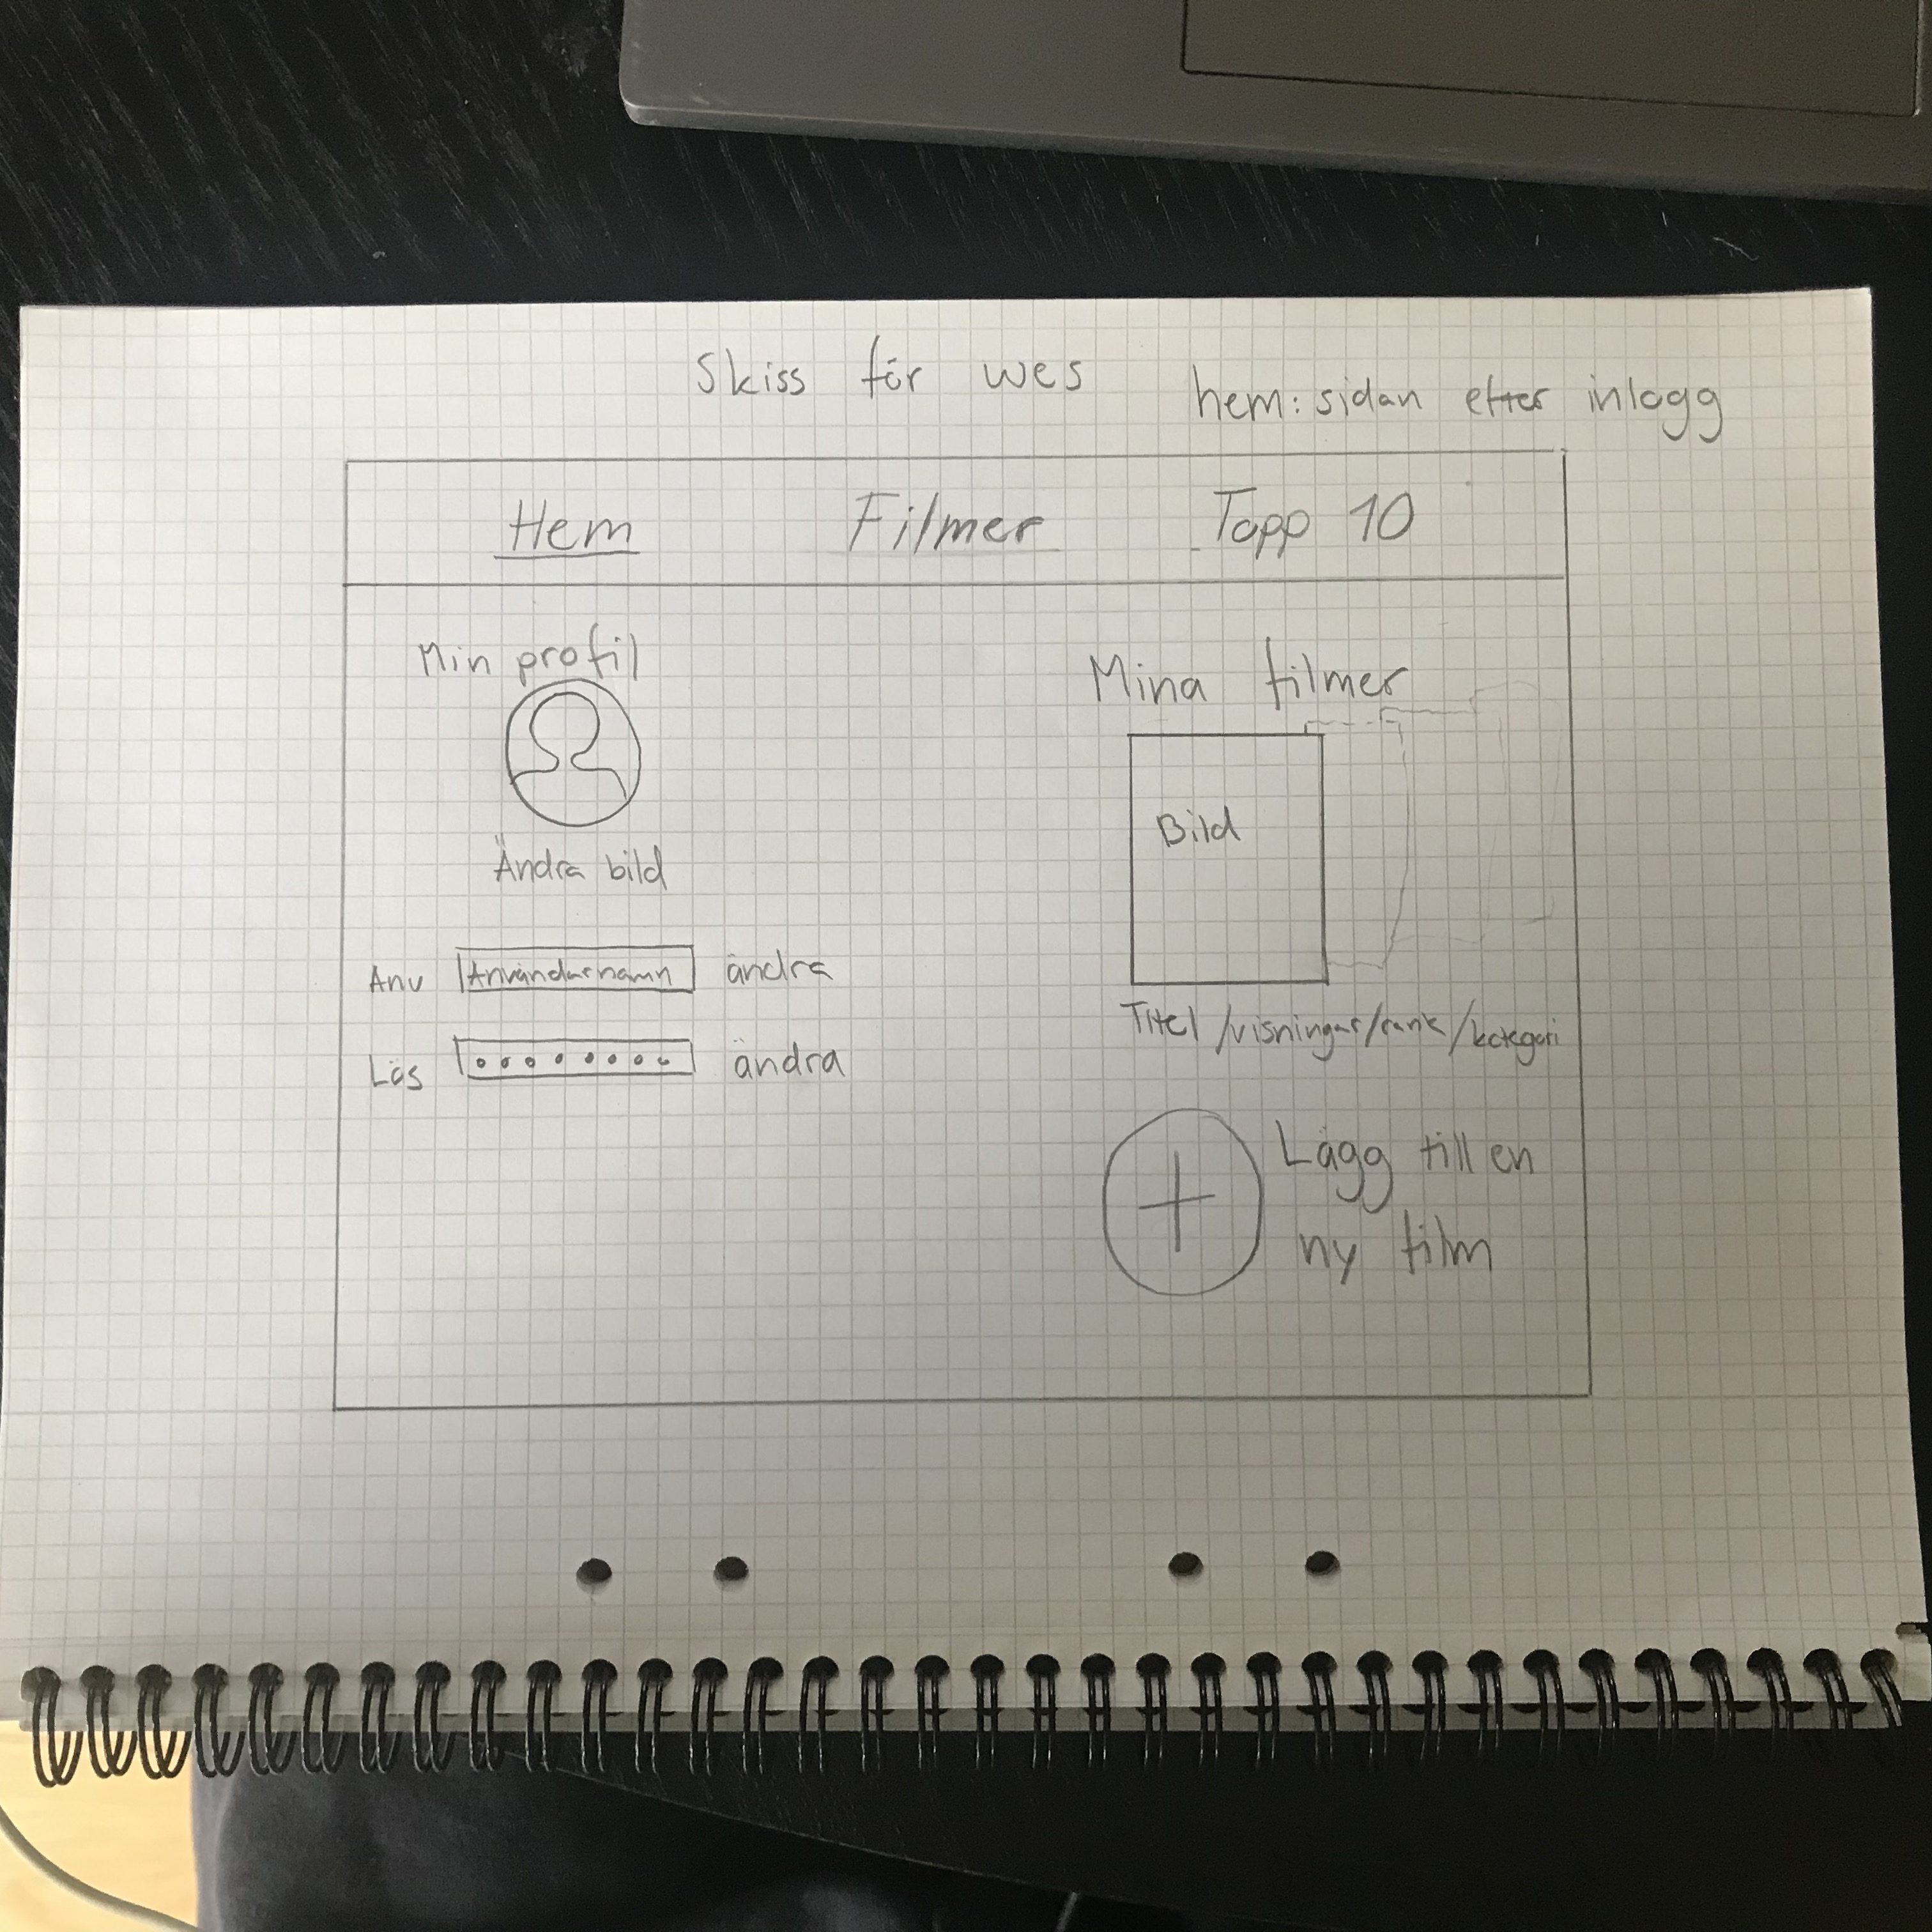 Skiss för wes hem:sidan efter inlogg
Hem Filmer Topp 10
Min profil
Ändra bild
Anv Användarnamn ändra
Lös ändra
Mina filmer
Bild
Titel/visningar/rank/kategori
+ Lägg till en
ny film